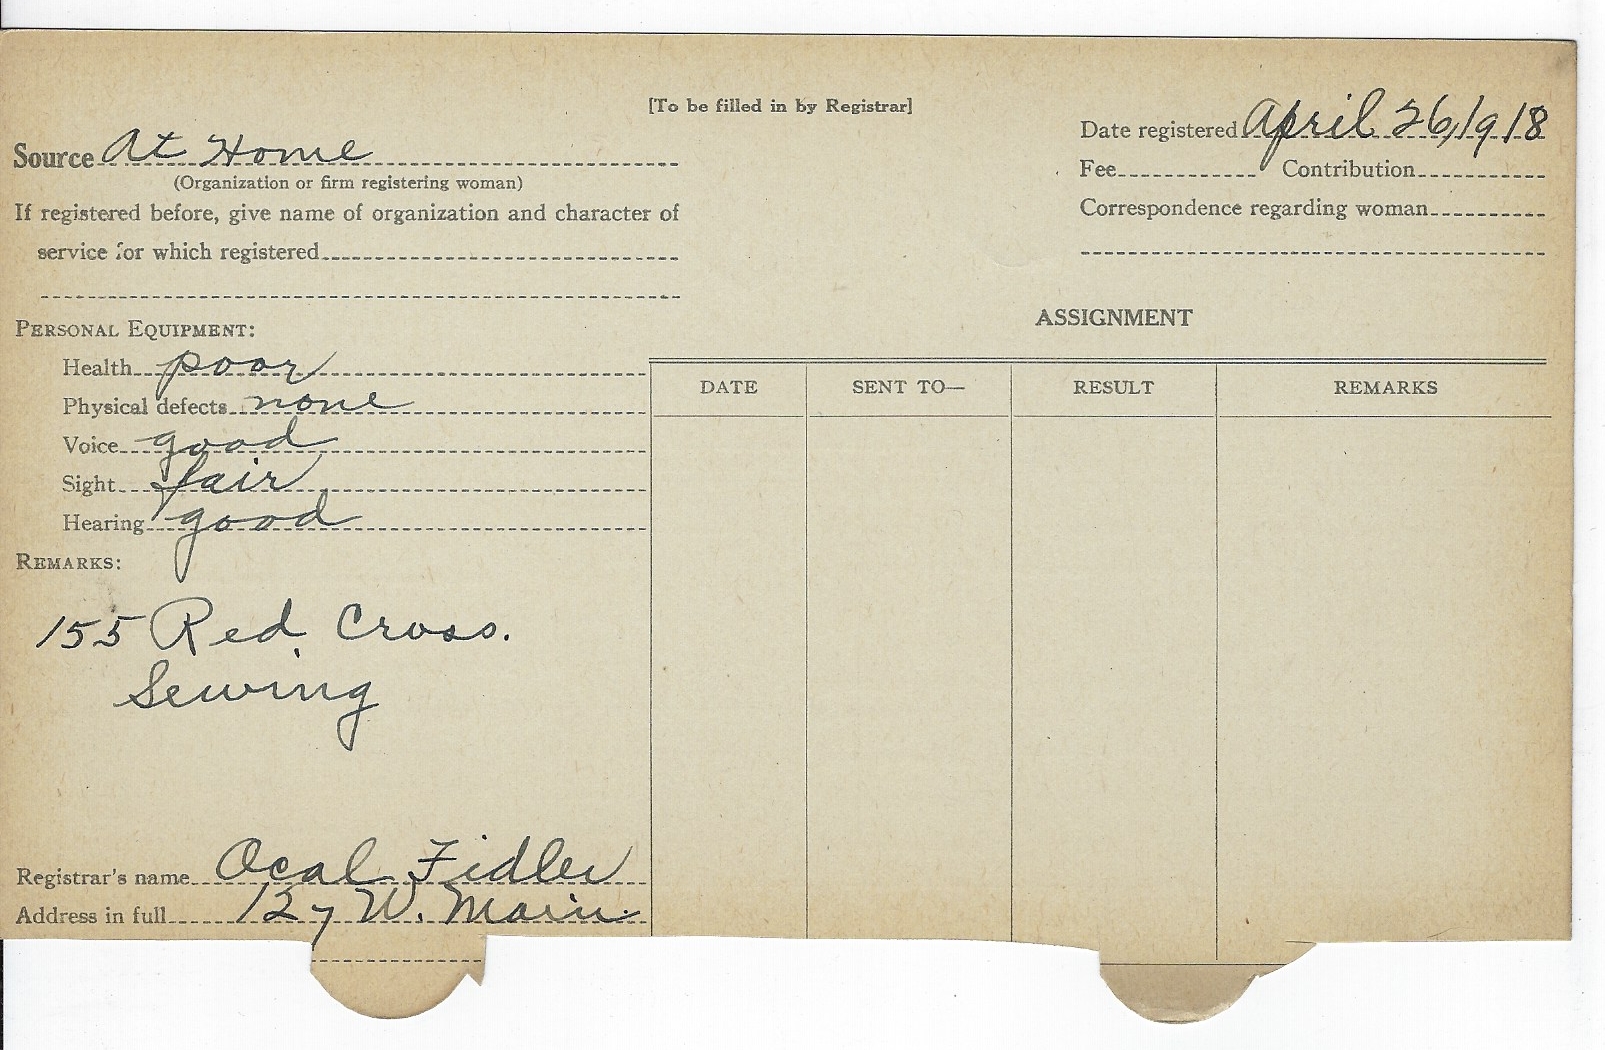 [To be filled in by Registrar]
Source At Home
(Organization or firm registering woman)
If registered before, give name of organization and character of
service for which registered
Date registered April 26, 1918
Fee Contribution
Correspondence regarding woman
PERSONAL EQUIPMENT:
Health poor
Physical defects none
Voice good
Sight fair
Hearing good
REMARKS:
155 Red Cross.
Sewing
Registrar's name Ocal Fidler
Address in full 127 W. Main.
ASSIGNMENT
DATE SENT TO— RESULT REMARKS